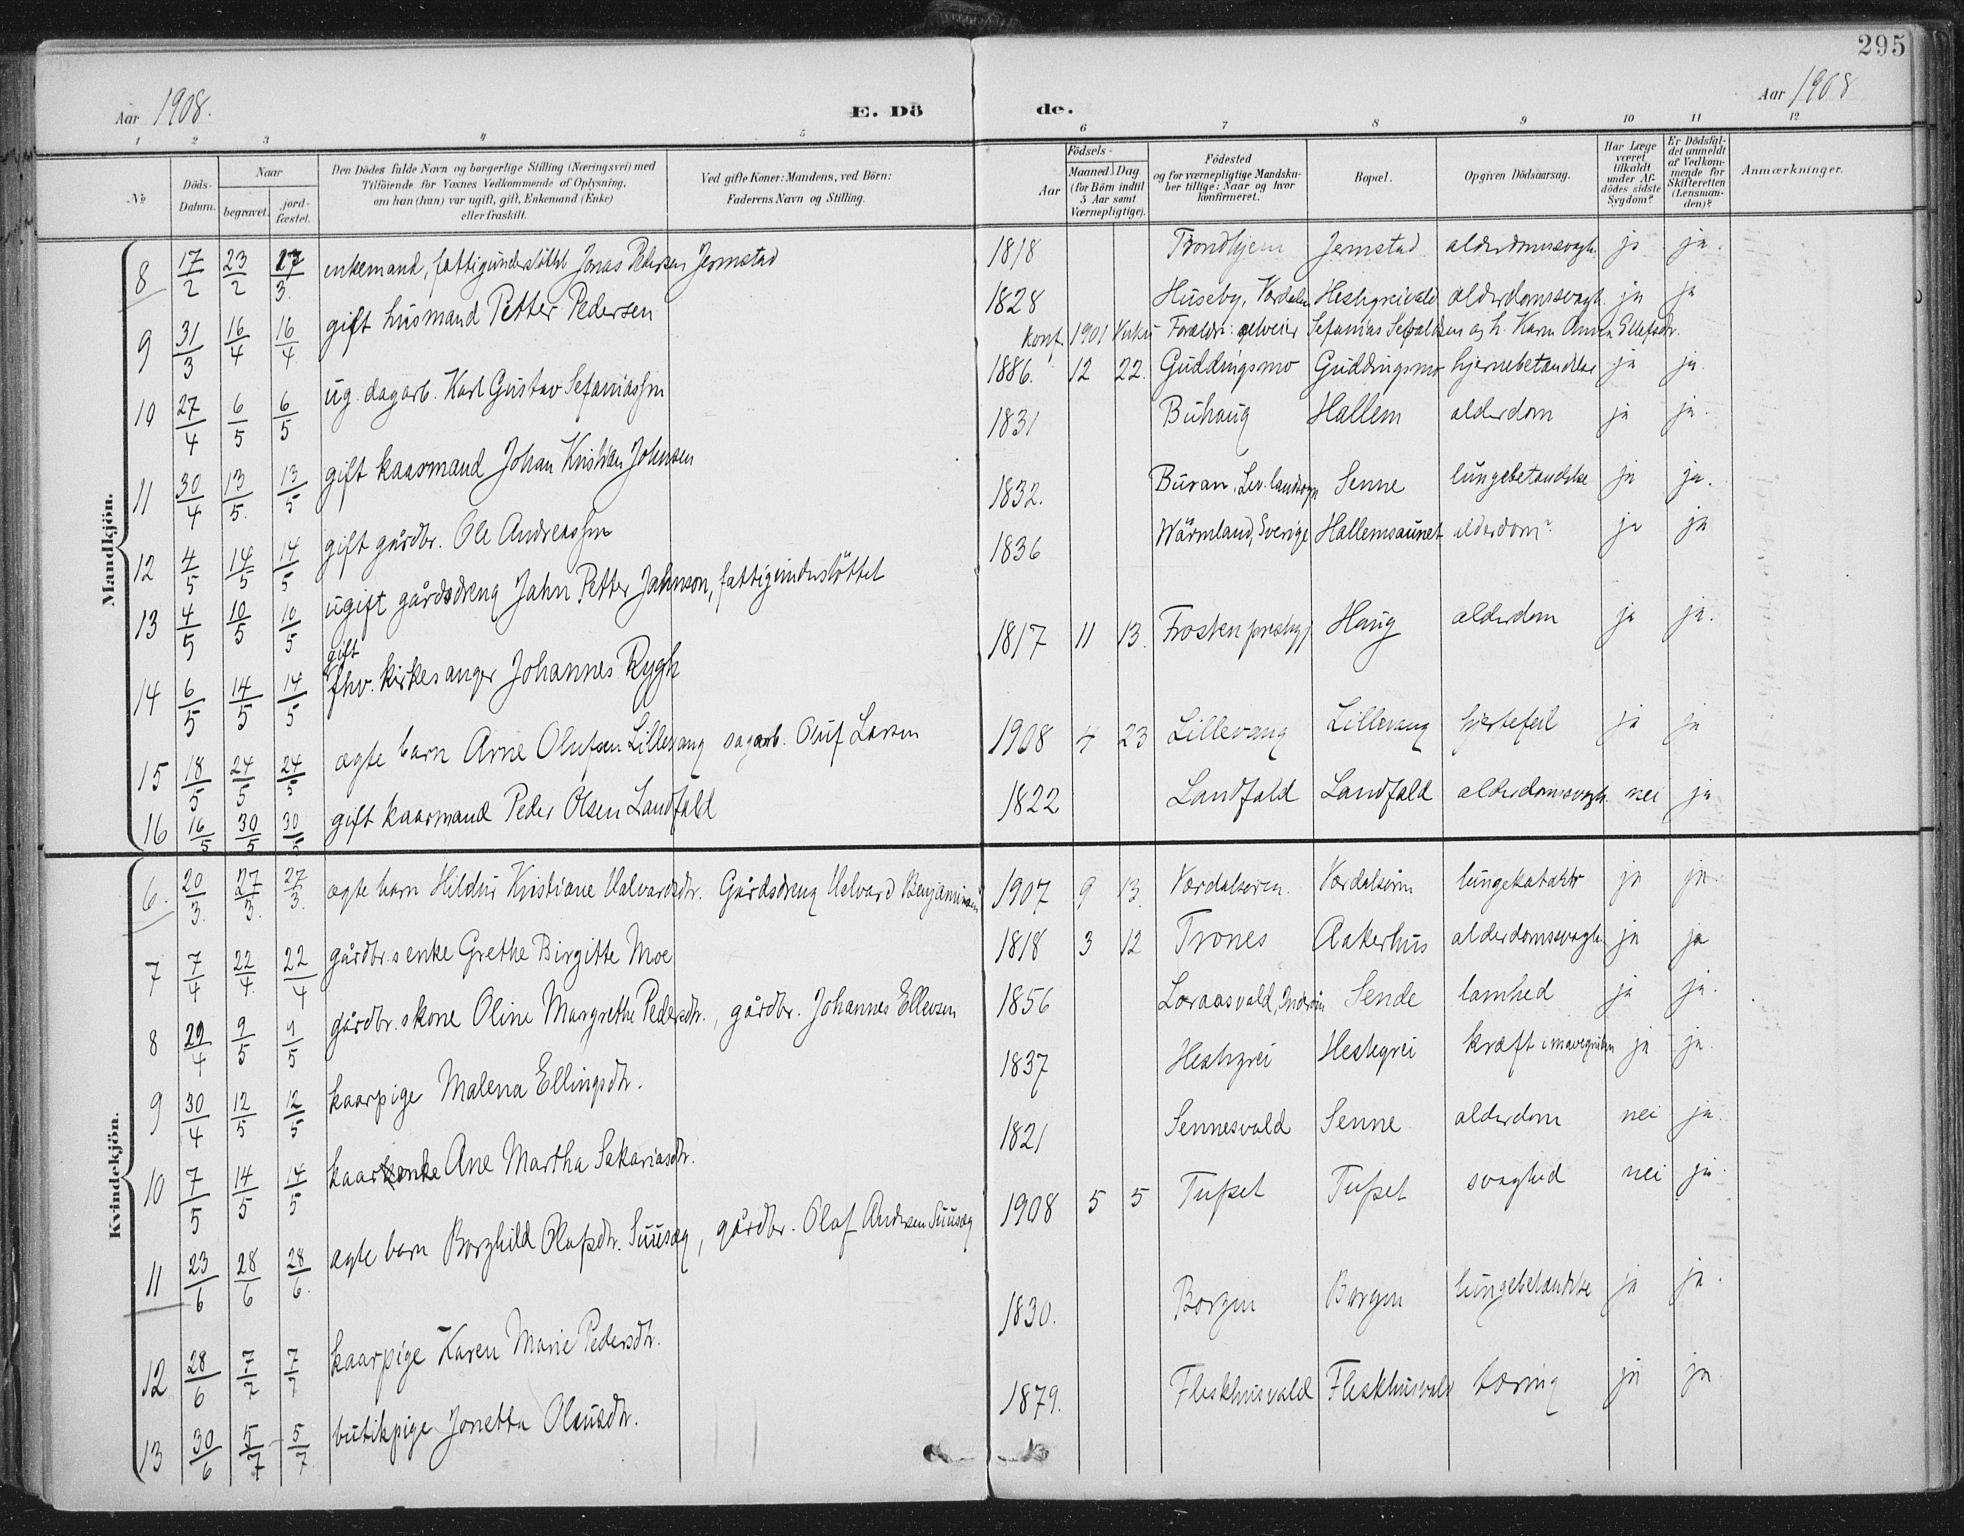 295
Aar 1908. E. Dö de. Aar 1908
1 2 3 4 5 6 7 8 9 10 11 12
No Döds-Datum. Naar begravet. jordfæstet. Den Dödes fulde Navn og borgerlige Stilling (Næringsvei) med Tilföiende for Voxnes Vedkommende af Oplysning, om han (hun) var ugift, gift, Enkemand (Enke) eller fraskilt. Ved gifte Koner: Mandens, ved Börn: Faderens Navn og Stilling. Födsels- Aar Maaned. Dag (for Börn indtil 5 Aar samt Værnepligtige). Födested og for værnepligtige Mandskaber tillige: Naar og hvor konfirmeret. Bopæl. Opgiven Dödsaarsag. Har Læge været tilkaldt under Afdödes sidste Sygdom? Er Dödsfaldet anmeldt af Vedkommende for Skifteretten (Lensmanden)? Anmærkninger.
Mandkjön.
8 17/2 23/2 17/3. enkemand, fattigunderstöttet Jonas Pedersen Jermstad 1818 Trondhjem Jermstad alderdomssvagh. ja ja.
9 31/3 16/4 16/4 gift husmand Petter Pedersen 1828 Huseby, Værdalen alderdomssvagh. ja ja
konf. 1901 Forældre: selveier Sefanias
10 27/4 6/5 6/5 ug. dagarb. Karl Gustav Sefaniassen 1886. 12 22. Guddingsmo Guddingsmo hjernebetændelse ja ja.
11 30/4 13/5. 13/5 gift kaarmand Johan Kristian Johnsen 1831 Buhaug Hallem alderdom ja ja.
12 4/5 14/5 14/5 gift gårdbr. Ole Andreassen 1832. Buran, Lev. landsogn Senne lungebetændelse ja ja.
13 4/5 10/5 10/5 ugift gårdsdreng Jahn Petter Jahnson, fattigunderstöttet 1836 Wärmland, Sverige Hallemsaunet alderdom ja ja
14 6/5 14/5 14/5 gift fhv. kirkesanger Johannes Rygh 1817 11 13. Frosten prestegj. Haug alderdom ja ja.
15 18/5 24/5 24/5 ægte barn Arne Olufsen Lillevang sagarb. Oluf Larsen 1908 4 23 Lillevang Lillevang hjertefeil ja ja
16 16/5 30/5 30/5 gift kaarmand Peder Olsen Landfald 1822 Landfald Landfald alderdomssvagh. nei ja
Kvindekjön.
6. 20/3. 27/3. 27/3. ægte barn Hildur Kristiane Halvardsdtr. Gårdsdreng Halvard Benjaminsen 1907 9 13. Værdalsören. Værdalsören lungekatarrh ja ja.
7 7/4 22/4. 22/4 gårdbr.s enke Grethe Birgitte Moe 1818 3 12 Trones Aakerhus alderdomssvagh. ja ja
8 29/4 9/5 9/5 gårdbr.skone Oline Margrethe Pedersdtr., gårdbr. Johannes Ellevsen 1856 Loraasvald, Inderöen Sende lamhed ja ja.
9 30/4 12/5 12/5 kaarpige Malena Ellingsdtr. 1837 Hestegrei Hestegrei kræft i mavegruben ja ja.
10 7/5 14/5 14/5 kaarenke Ane Martha Sakariasdtr. 1821 Sennesvald Senne alderdom nei ja.
11 23/6 28/6 28/6. ægte barn Borghild Olafsdtr. Suusæg, gårdbr. Olaf Andersen Suusæg 1908 5 5 Tufset Tufset svaghed nei ja.
12 28/6 7/7 7/7 kaarpige Karen Marie Pedersdtr. 1830. Borgen Borgen lungebetændelse ja ja.
13 30/6 5/7 5/7 butikpige Jonetta Olausdtr. 1879. Fleskhusvald Fleskhusvald tæring ja ja.